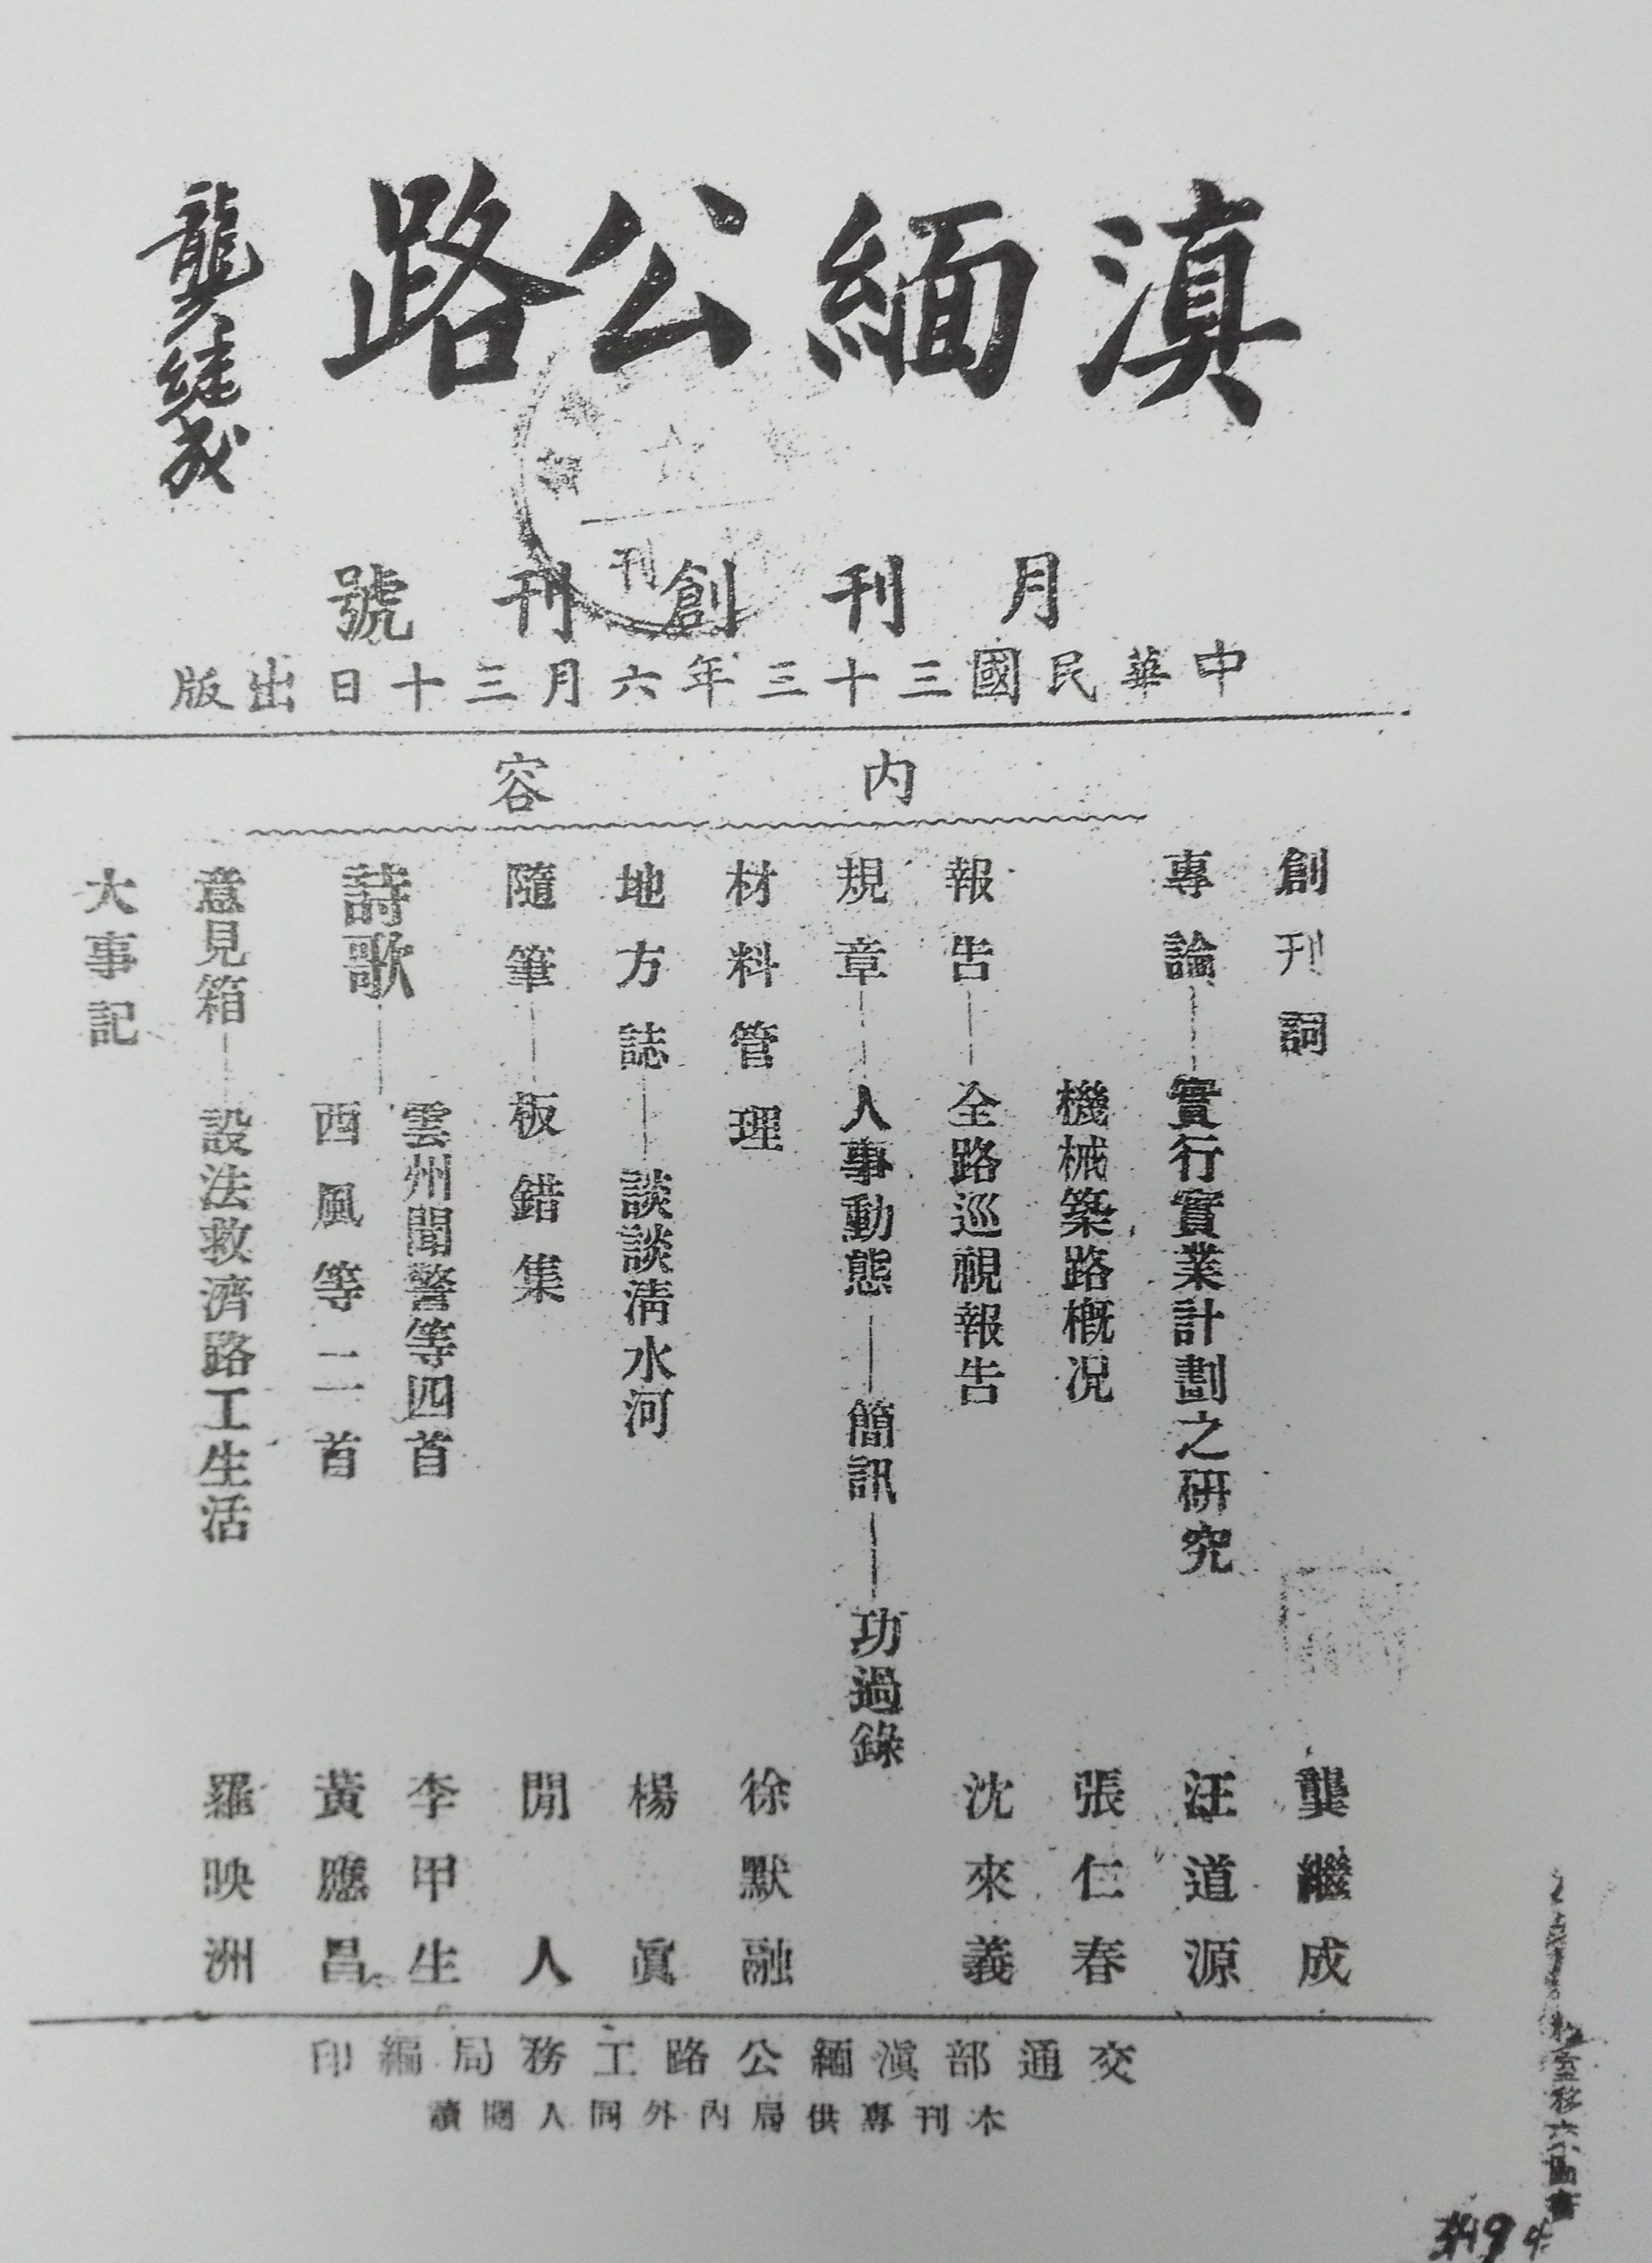 滇緬公路
龔继成
月刊創刊號
中華民國三十三年六月三十日出版
內容
創刊詞 龔繼成
專論——實行實業計劃之研究 汪道源
機械築路概況 張仁春
報告——全路巡視報告 沈來義
規章——人事動態——簡訊——功過錄
材料管理 徐默融
地方誌——談談清水河 楊真
隨筆——板錯集 閒人
詩歌——雲州聞警等四首 李甲生
西風等二首 黃應昌
意見箱——設法救濟路工生活 羅映洲
大事記
交通部滇緬公路工務局編印
本刊專供局內外同人閱讀
刊